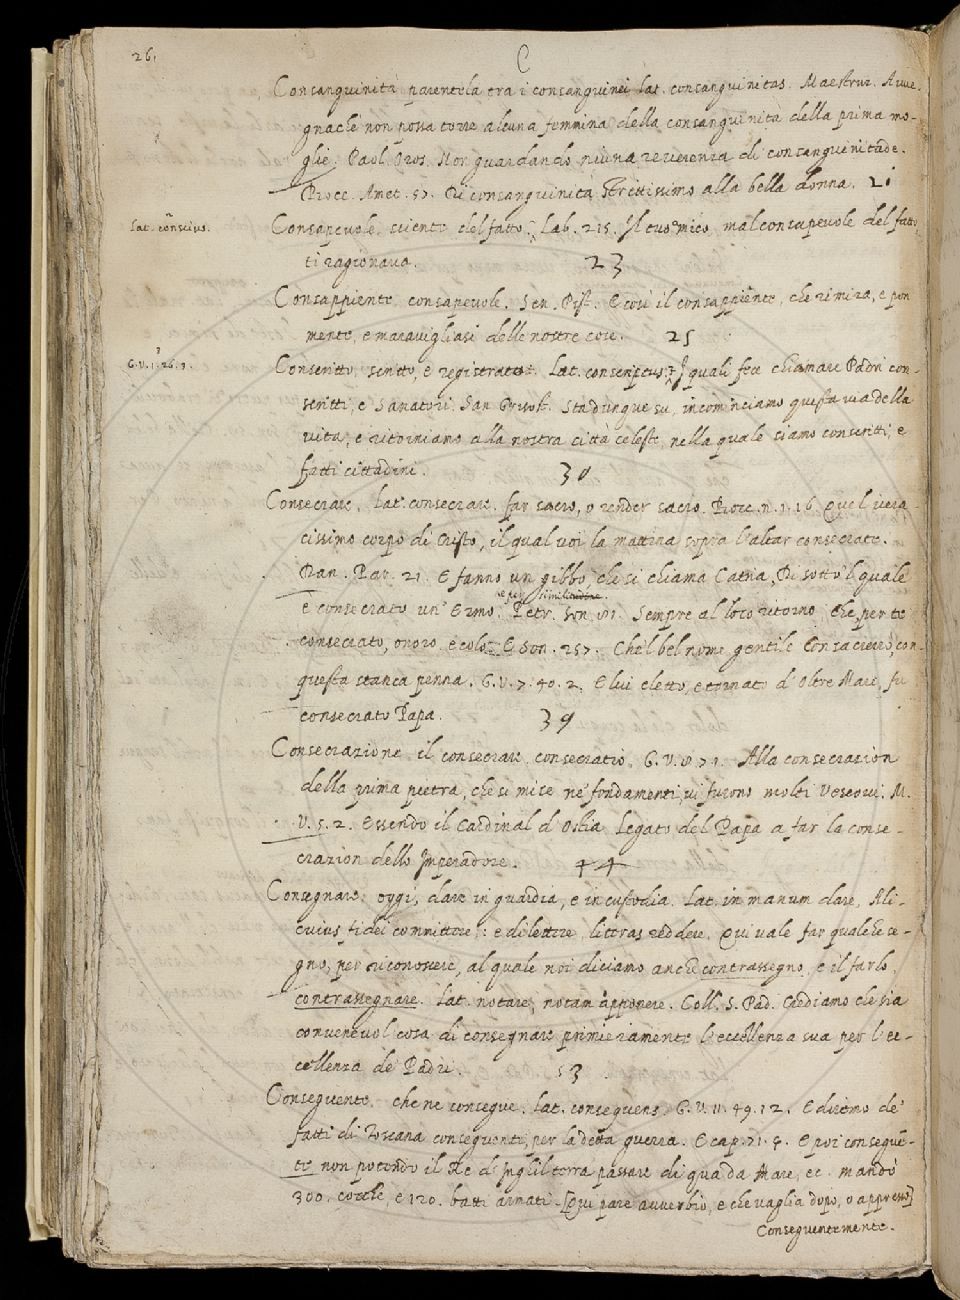 26.
C
Consanguinità parentela tra i consanguinei lat. consanguinitas. Maestruz. Avve-
gnachè non possa torre alcuna femmina della consanguinità della prima mo-
glie. Paol. Oros. Non guardando niuna reverenza di consanguenitade.
Bocc. Amet. 57. Di consanguinità strettissimo alla bella donna. 21
lat. conscius.
Consapevole. sciente del fatto. Lab. 215. Il tuo amico, mal consapevole del fatto
ti ragionava. 23
Consappiente. consapevole. Sen. Pist. E così il consappiente, che rimira, e pon
mente, e maravigliasi delle nostre cose. 25
G.V. 1. 26. 3.
Conscritto. scritto, e registrato. Lat. conscriptus. I quali fece chiamare Padri con-
scritti, e Sanatori. San Grisost. Sta dunque su, incominciamo questa via della
vita, e ritorniamo alla nostra città celeste, nella quale siamo conscritti, e
fatti cittadini. 30
Consecrare. Lat. consecrare. far sacro, o render sacro. Bocc. n. 1. 16. Quel vera-
cissimo corpo di Cristo, il qual voi la mattina sopra l'altar consecrate.
Dan. Par. 21. E fanno un gibbo, che si chiama Catria, Di sotto 'l quale
e per similitudine.
è consecrato un' Ermo. Petr. Son. Sempre al loco ritorno Che per te
consecrato, onoro e colo. E Son. 257. Che 'l bel nome gentile Consacrerò, con
questa stanca penna. G.V. 7. 40. 2. E lui eletto, e tornato d'Oltre Mare, fu
consecrato Papa. 39
Consecrazione. il consecrare. consecratio. G.V. Alla consecrazion
della prima pietra, che si mise ne' fondamenti, vi furono molti Vescovi. M.
V. 5. 2. Essendo il Cardinal d'Ostia Legato del Papa a far la conse-
crazion dello Imperadore. 44
Consegnare. oggi, dare in guardia, e in custodia. Lat. in manum dare, Ali-
cuius fidei committere: e di lettere, litteras reddere. Qui vale far qualche se-
gno, per riconoscere, al quale noi diciamo anche contrassegno, e il farlo,
contrassegnare. Lat. notare, notam apponere. Coll. S. Pad. Crediamo che sia
convenevol cosa di consegnare primieramente l'eccellenza sua per l'ec-
cellenza de' Padri. 53
Conseguente. che ne consegue. Lat. consequens. G.V. 11. 49. 12. E diremo de'
fatti di Toscana conseguenti, per la detta guerra. E cap. 71. 4. E poi consegue-
te non potendo il Re d'Inghilterra passare di qua da Mare, ec. mandò
300. cocche, e 120. batti armati. [Qui pare avverbio, e che vaglia dopo, o appresso]
Conseguentemente.